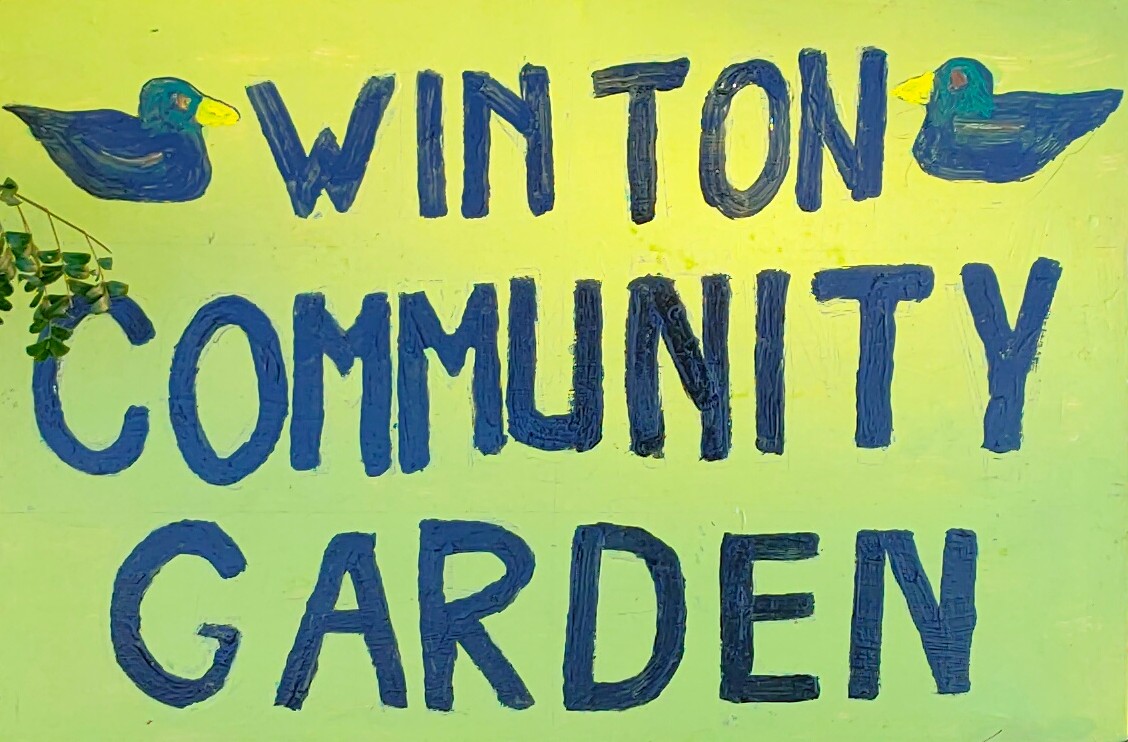 WINTON
COMMUNITY
GARDEN